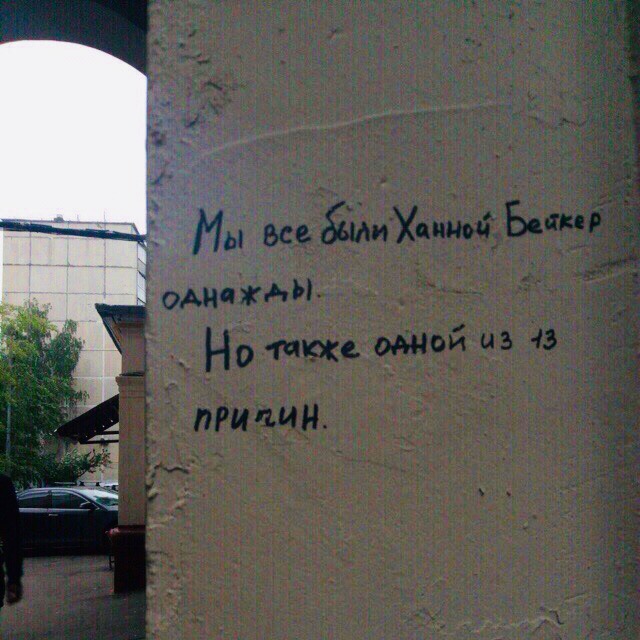 Мы все были Ханной Бейкер
однажды.
Но также одной из 13
причин.